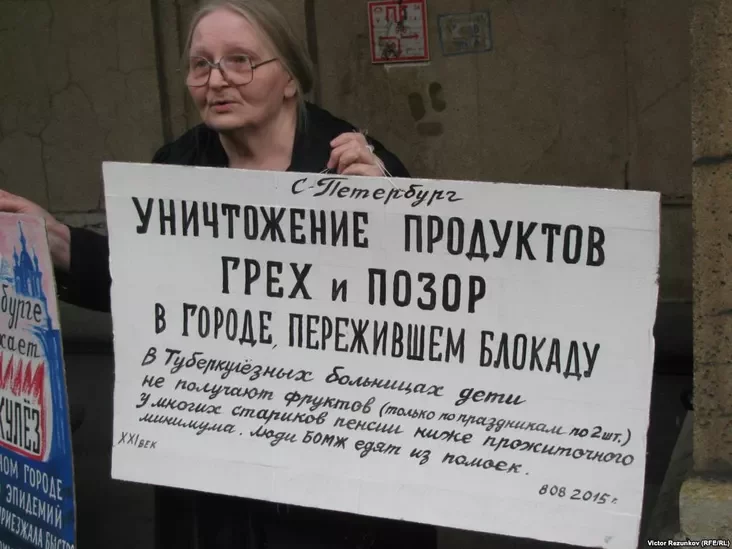 С-Петербург
УНИЧТОЖЕНИЕ ПРОДУКТОВ
ГРЕХ и ПОЗОР
В ГОРОДЕ, ПЕРЕЖИВШЕМ БЛОКАДУ
В Туберкулёзных больницах дети
не получают фруктов (только по праздникам по 2 шт.)
У многих стариков пенсии ниже прожиточного
минимума. Люди БОМЖ едят из помоек.
XXI ВЕК
8 08 2015 г.
бурге
КУЛЁЗ
ОМ ГОРОДЕ
ЭПИДЕМИЙ
ПРИЕЗЖАЛА БЫСТРО
Victor Rezunkov (RFE/RL)